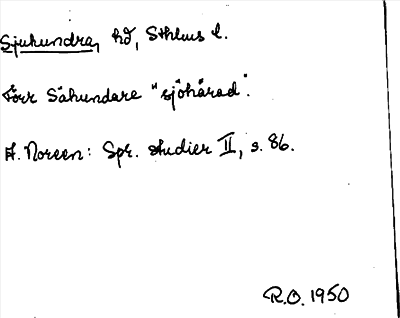 Sjuhundra, hd, Sthlms l.
Förr Såhundare "sjöhärad".
A. Noreen: Spr. studier II, s. 86.
R.O. 1950